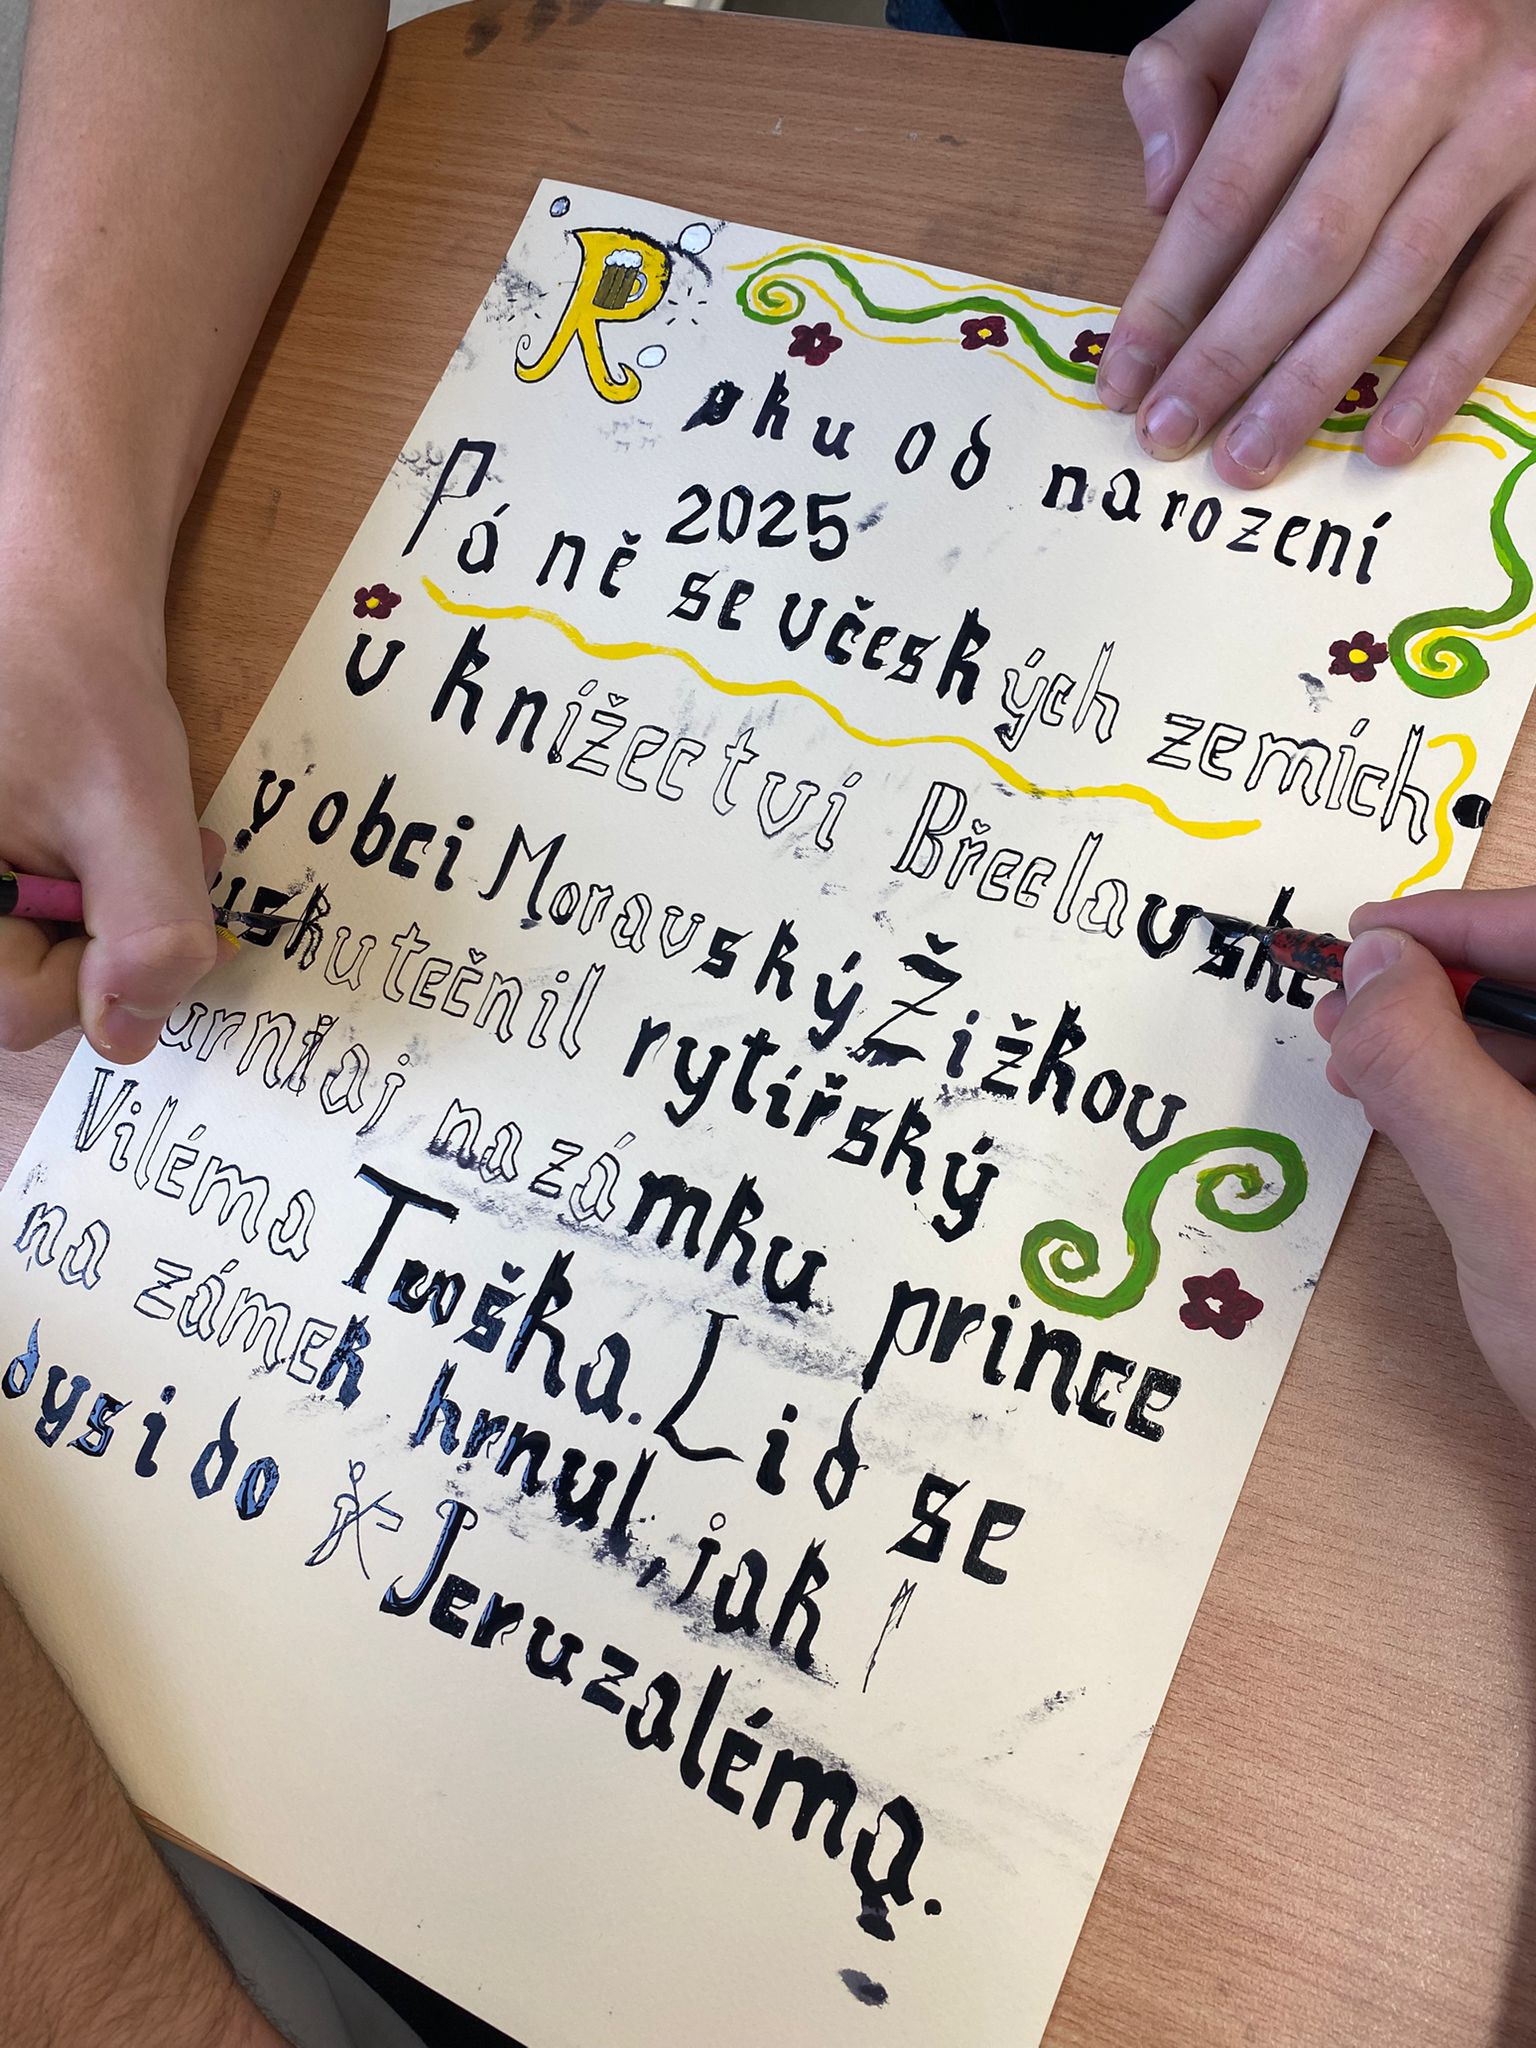 Roku od narození
Páně 2025 se v českých zemích
v knížectví Břeclavské
v obci Moravský Žižkov
uskutečnil rytířský
na zámku prince
Viléma Lid se
na zámek hrnul, jak
dysi do Jeruzaléma.